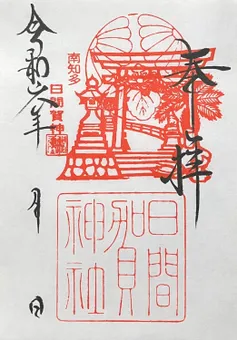 奉拝
南知多
日間賀
日間
賀
神社
令和六年 月 日